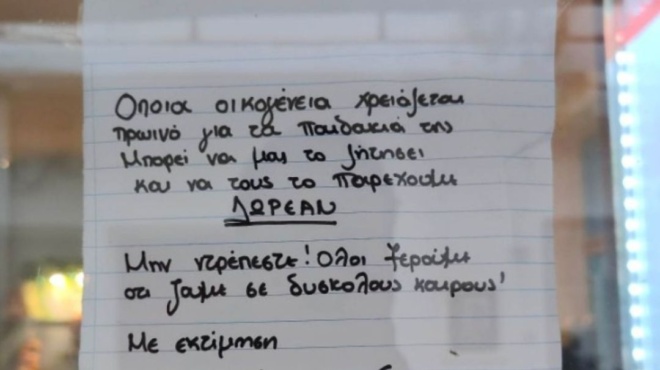 Οποια οικογένεια χρειάζεται
πρωινό για τα παιδακιά της
Μπορεί να μας το ζητησει
και να τους το παρεχουμε
ΔΩΡΕΑΝ
Μην ντρέπεστε! Ολοι ξερούμε
οτι ζαμε σε δυσκολους καιρους!
Με εκτίμηση